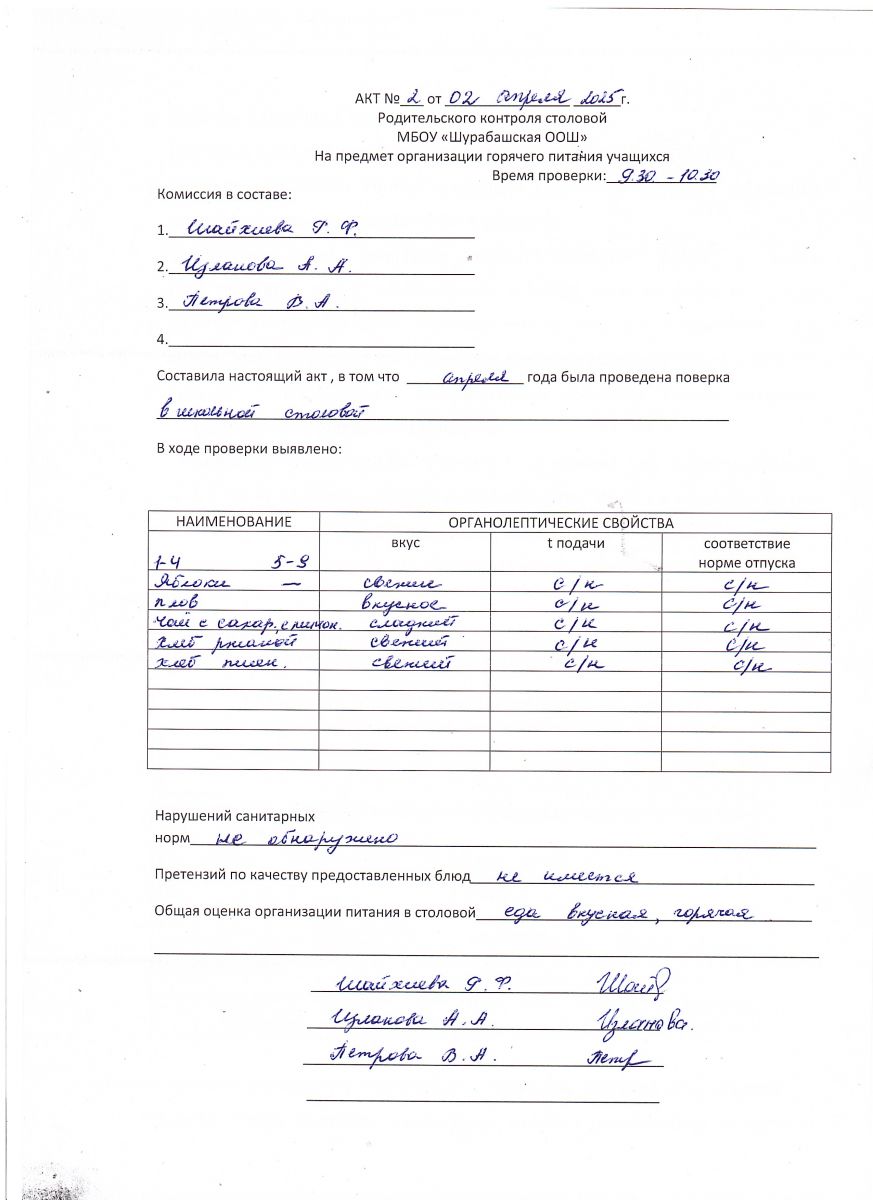 АКТ № 2 от 02 апреля 2025 г.
Родительского контроля столовой
МБОУ «Шурабашская ООШ»
На предмет организации горячего питания учащихся
Время проверки: 9.30 - 10.30
Комиссия в составе:
1. Шайхиева Г. Ф.
2. Изланова А. А.
3. Петрова В. А.
4.
Составила настоящий акт , в том что апреля года была проведена поверка
в школьной столовой
В ходе проверки выявлено:
НАИМЕНОВАНИЕ ОРГАНОЛЕПТИЧЕСКИЕ СВОЙСТВА
вкус t подачи соответствие
1-4 5-9 норме отпуска
Яблоки — свежие с/н с/н
плов вкусное с/н с/н
Чай с сахар. с лимон. сладкий с/н с/н
Хлеб ржаной свежий с/н с/н
хлеб пшен. свежий с/н с/н
Нарушений санитарных
норм не обнаружено
Претензий по качеству предоставленных блюд не имеется
Общая оценка организации питания в столовой еда вкусная, горячая
Шайхиева Г. Ф. Шай
Изланова А. А. Изланова.
Петрова В. А. Петр